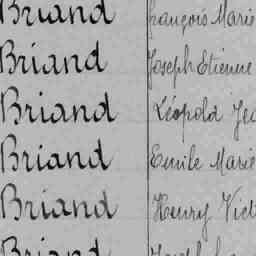 Briand François Marie
Briand Joseph Etienne
Briand Léopold
Briand Emile Marie
Briand Henry
Briand Joseph